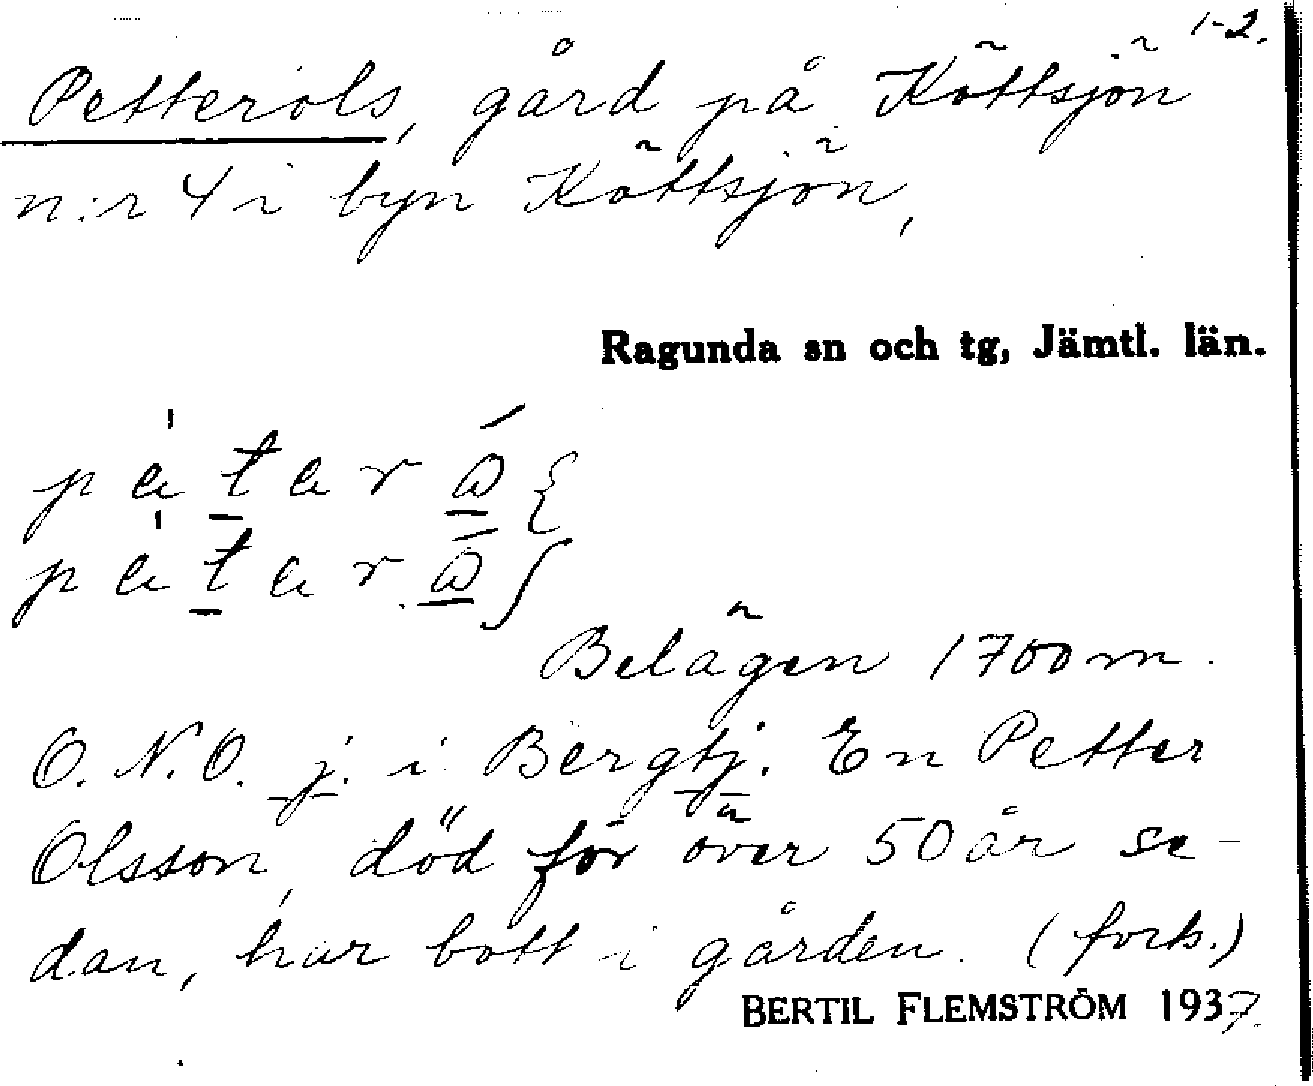 1-2.
Petterols, gård på Köttsjön
n:r 4 i byn Köttsjön,
Ragunda sn och tg, Jämtl. län.
Belägen 1700 m.
O.N.O. j. i Bergtj. En Petter
Olsson, död för över 50 år se-
dan, har bott i gården. (forts.)
BERTIL FLEMSTRÖM 1937.